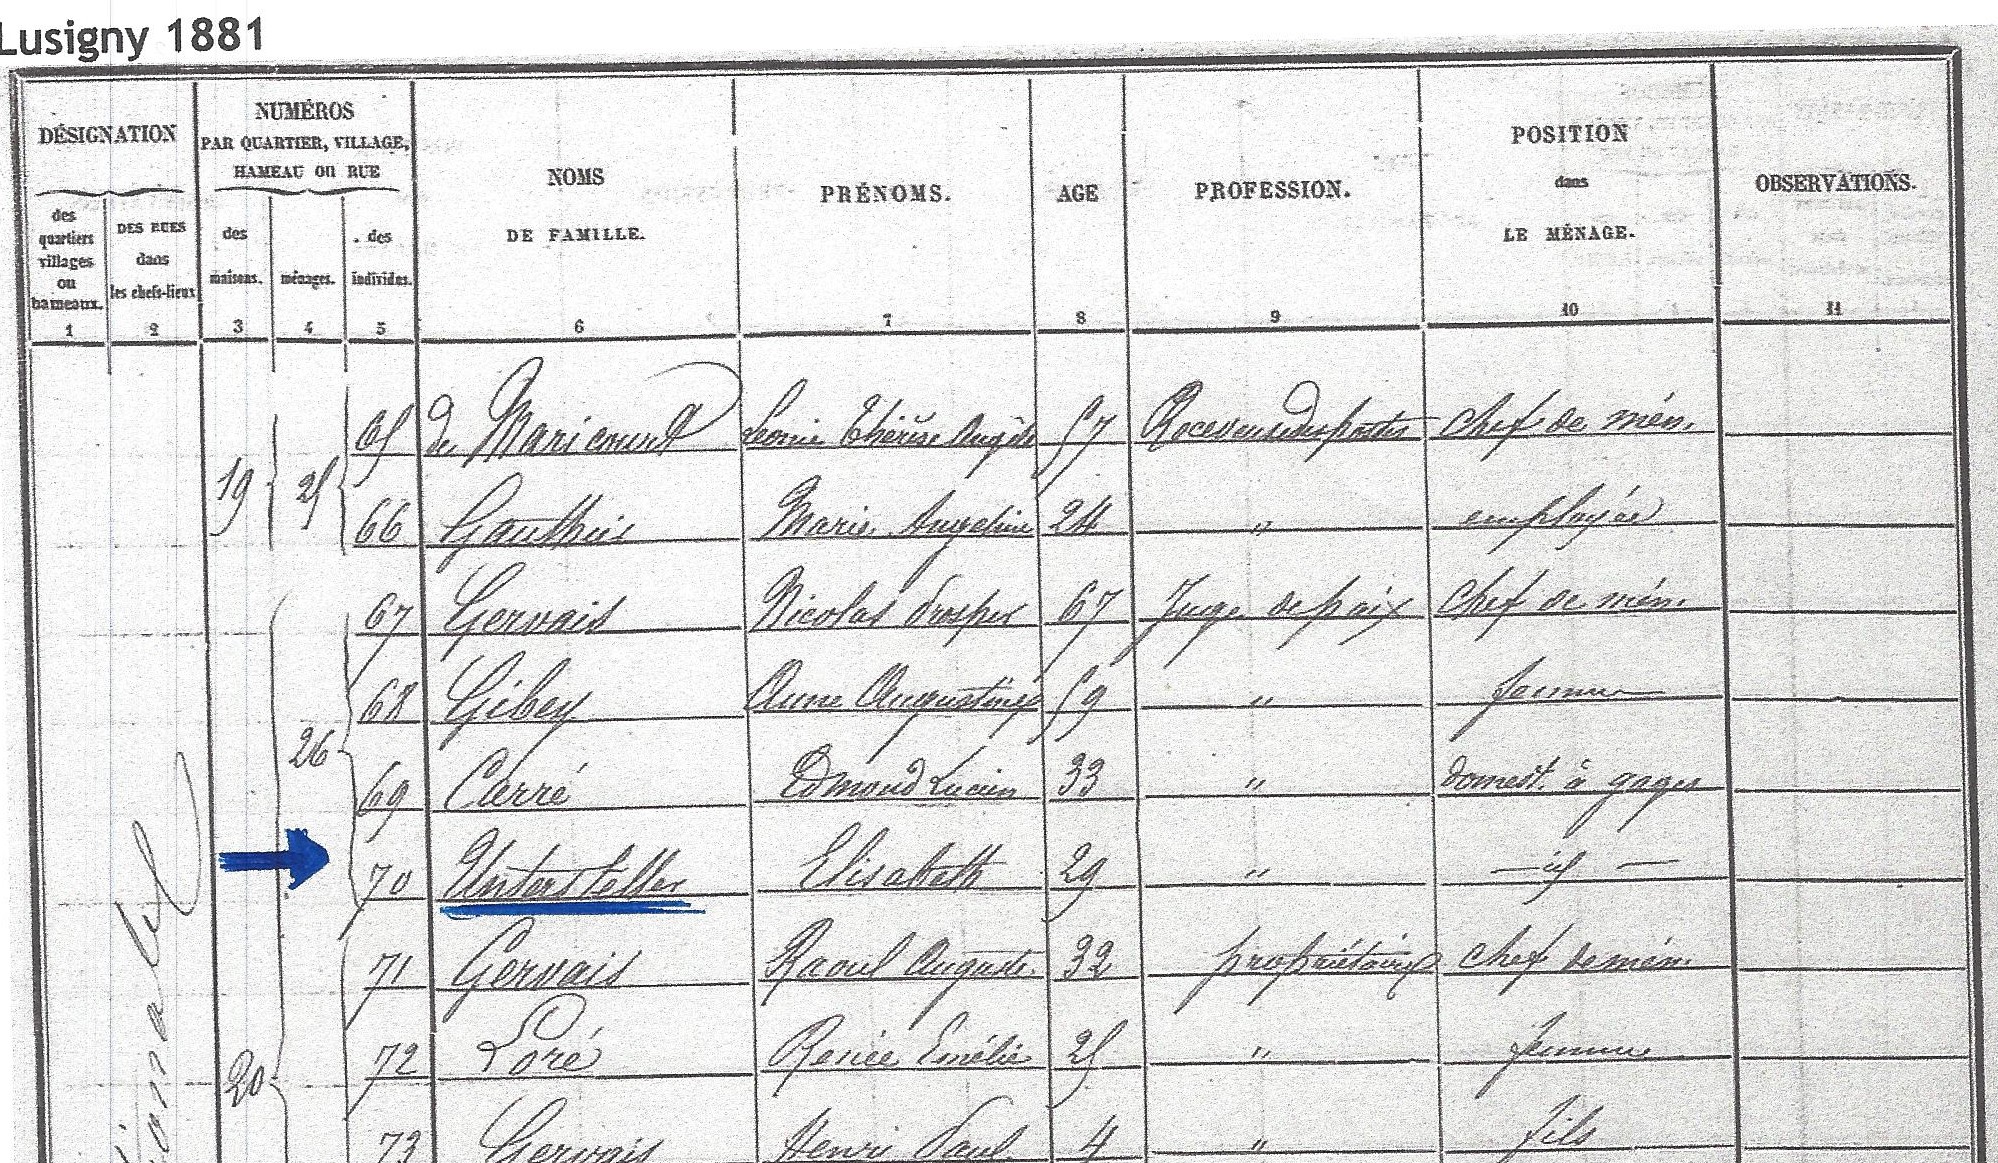 Lusigny 1881
DÉSIGNATION
NUMÉROS
PAR QUARTIER, VILLAGE,
HAMEAU OU RUE
NOMS
DE FAMILLE.
PRÉNOMS.
AGE
PROFESSION.
POSITION
dans
LE MÉNAGE.
OBSERVATIONS.
des
quartiers
villages
ou
hameaux.
DES RUES
dans
les chefs-lieux
des
maisons.
ménages.
des
individus.
1 2 3 4 5 6 7 8 9 10 11
19 25 65 de Maricourt Léonie Thérèse Angèle 57 Receveuse des postes chef de mén.
66 Gauthier Marie Angeline 24 " employée
67 Gervais Nicolas Prosper 67 Juge de paix chef de mén.
26 68 Gibey Anne Augustine 59 " femme
69 Carré Edmond Lucien 33 " domest. à gages
70 Untersteller Elisabeth 29 " — id —
71 Gervais Raoul Auguste 32 propriétaire chef de mén.
20 72 Loré Renée Emélie 25 " femme
73 Gervais Henri Paul 4 " fils